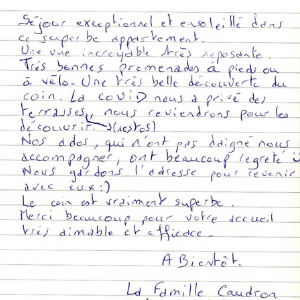 Séjour exceptionnel et ensoleillé dans
ce superbe appartement.
Une vue incroyable très reposante.
Très bonnes promenades à pieds ou
à vélo. Une très belle découverte du
coin. La covid nous a privé des
terrasses, nous reviendrons pour les
découvrir. (restos)
Nos ados, qui n'ont pas daigné nous
accompagner, ont beaucoup regretté
Nous gardons l'adresse pour revenir
avec eux :)
Le coin est vraiment superbe.
Merci beaucoup pour votre accueil
très aimable et efficace.
A Bientôt.
La Famille Caudron